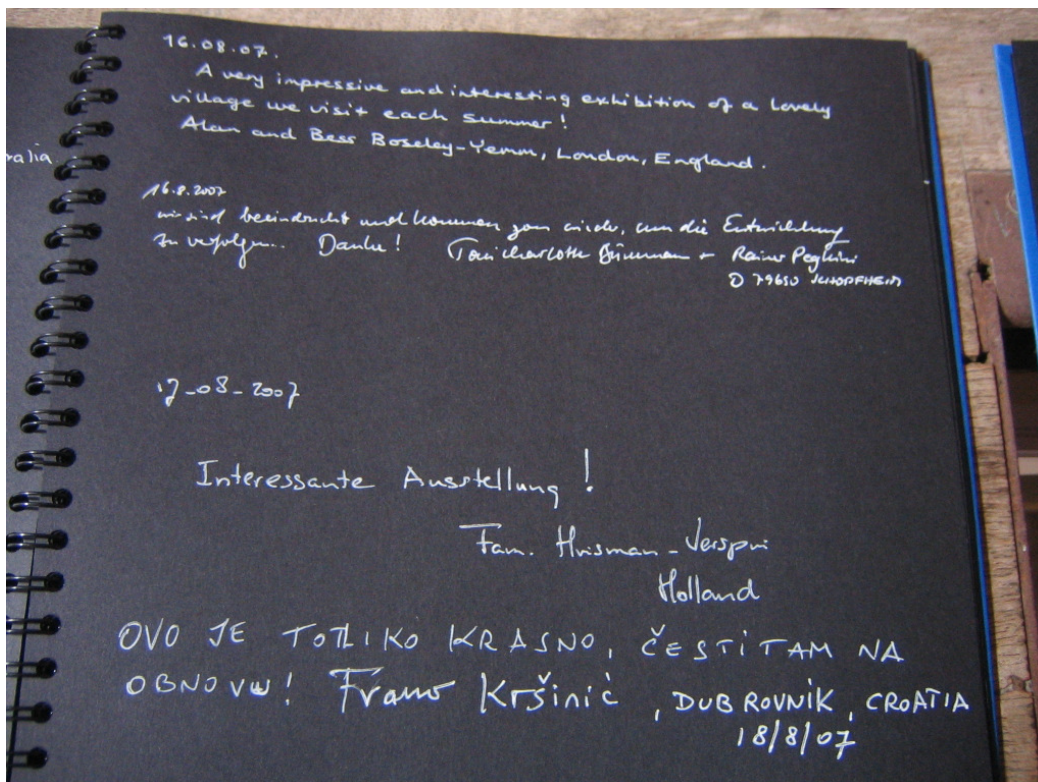 ralia.
16.08.07.
A very impressive and interesting exhibition of a lovely
village we visit each summer!
Alan and Bess Boseley-Yemm, London, England.
16.8.2007
wir sind beeindruckt und kommen gern wieder, um die Entwicklung
zu verfolgen... Danke! + Rainer
D 79650 SCHOPFHEIM
17-08-2007
Interessante Ausstellung!
Fam. Holland
OVO JE TOLIKO KRASNO, ČESTITAM NA
OBNOVU! Frano Kršinić, DUBROVNIK, CROATIA
18/8/07